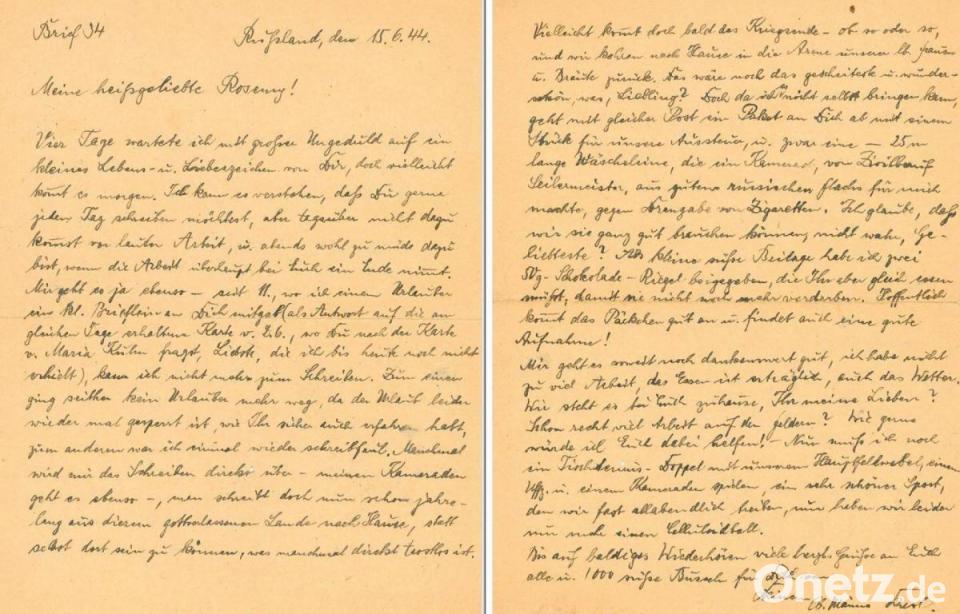 Brief 34
Rußland, den 15.6.44.
Meine heißgeliebte Rosemy!
Vier Tage wartete ich mit großer Ungeduld auf ein
kleines Lebens- u. Liebeszeichen von Dir, doch vielleicht
kommt es morgen. Ich kann es verstehen, daß Du gerne
jeden Tag schreiben möchtest, aber tagsüber nicht dazu
kommst vor lauter Arbeit, u. abends wohl zu müde dazu
bist, wenn die Arbeit überhaupt bei Euch ein Ende nimmt.
Mir geht es ja ebenso - seit 11., wo ich einem Urlauber
ein kl. Brieflein an Dich mitgab (als Antwort auf die am
gleichen Tage erhaltene Karte v. 2.6., wo Du nach der Karte
v. Maria Kuhn fragst, die ich bis heute noch nicht
erhielt), kam ich nicht mehr zum Schreiben. Zum einen
ging seither kein Urlauber mehr weg, da der Urlaub leider
wieder mal gesperrt ist, wie Ihr sicher auch erfahren habt,
zum anderen war ich einmal wieder schreibfaul. Manchmal
wird mir das Schreiben direkt über - meinen Kameraden
geht es ebenso -, man schreibt doch nun schon jahre-
lang aus diesem gottverlassenen Lande nach Hause, statt
selbst dort sein zu können, was manchmal direkt trostlos ist.
Vielleicht kommt doch bald das Kriegsende - ob so oder so,
und wir kehren nach Hause in die Arme unserer lb. Frauen
u. Bräute zurück. Das wäre noch das gescheiteste u. wunder-
schön, was, Liebling? Doch da ich nicht selbst bringen kann,
geht mit gleicher Post ein Paket an Dich ab mit einem
Stück für unsere Aussteuer, u. zwar eine - 25 m
lange Wäscheleine, die ein Kamerad, von Zivilberuf
Seilermeister, aus gutem russischen Flachs für mich
machte, gegen Drangabe von Zigaretten. Ich glaube, daß
wir sie ganz gut brauchen können, nicht wahr, Ge-
liebteste? Als kleine süße Beilage habe ich zwei
50g-Schokolade-Riegel beigegeben, die Ihr aber gleich essen
müßt, damit sie nicht noch mehr verderben. Hoffentlich
kommt das Päckchen gut an u. findet auch eine gute
Aufnahme!
Mir geht es soweit noch dankenswert gut, ich habe nicht
zu viel Arbeit, das Essen ist erträglich, auch das Wetter.
Wie steht es bei Euch zuhause, Ihr meine Lieben?
Schon recht viel Arbeit auf den Feldern? Wie gerne
würde ich Euch dabei helfen! - Nun muß ich noch
ein Tischtennis-Doppel mit unserem Hauptfeldwebel, einem
Uffz. u. einem Kameraden spielen, ein sehr schöner Sport,
den wir fast allabendlich treiben, nur haben wir leider
nur mehr einen Celluloidball.
Bis auf baldiges Wiederhören viele herzl. Grüße an Euch
alle u. 1000 süße Busserl für
Onetz.de